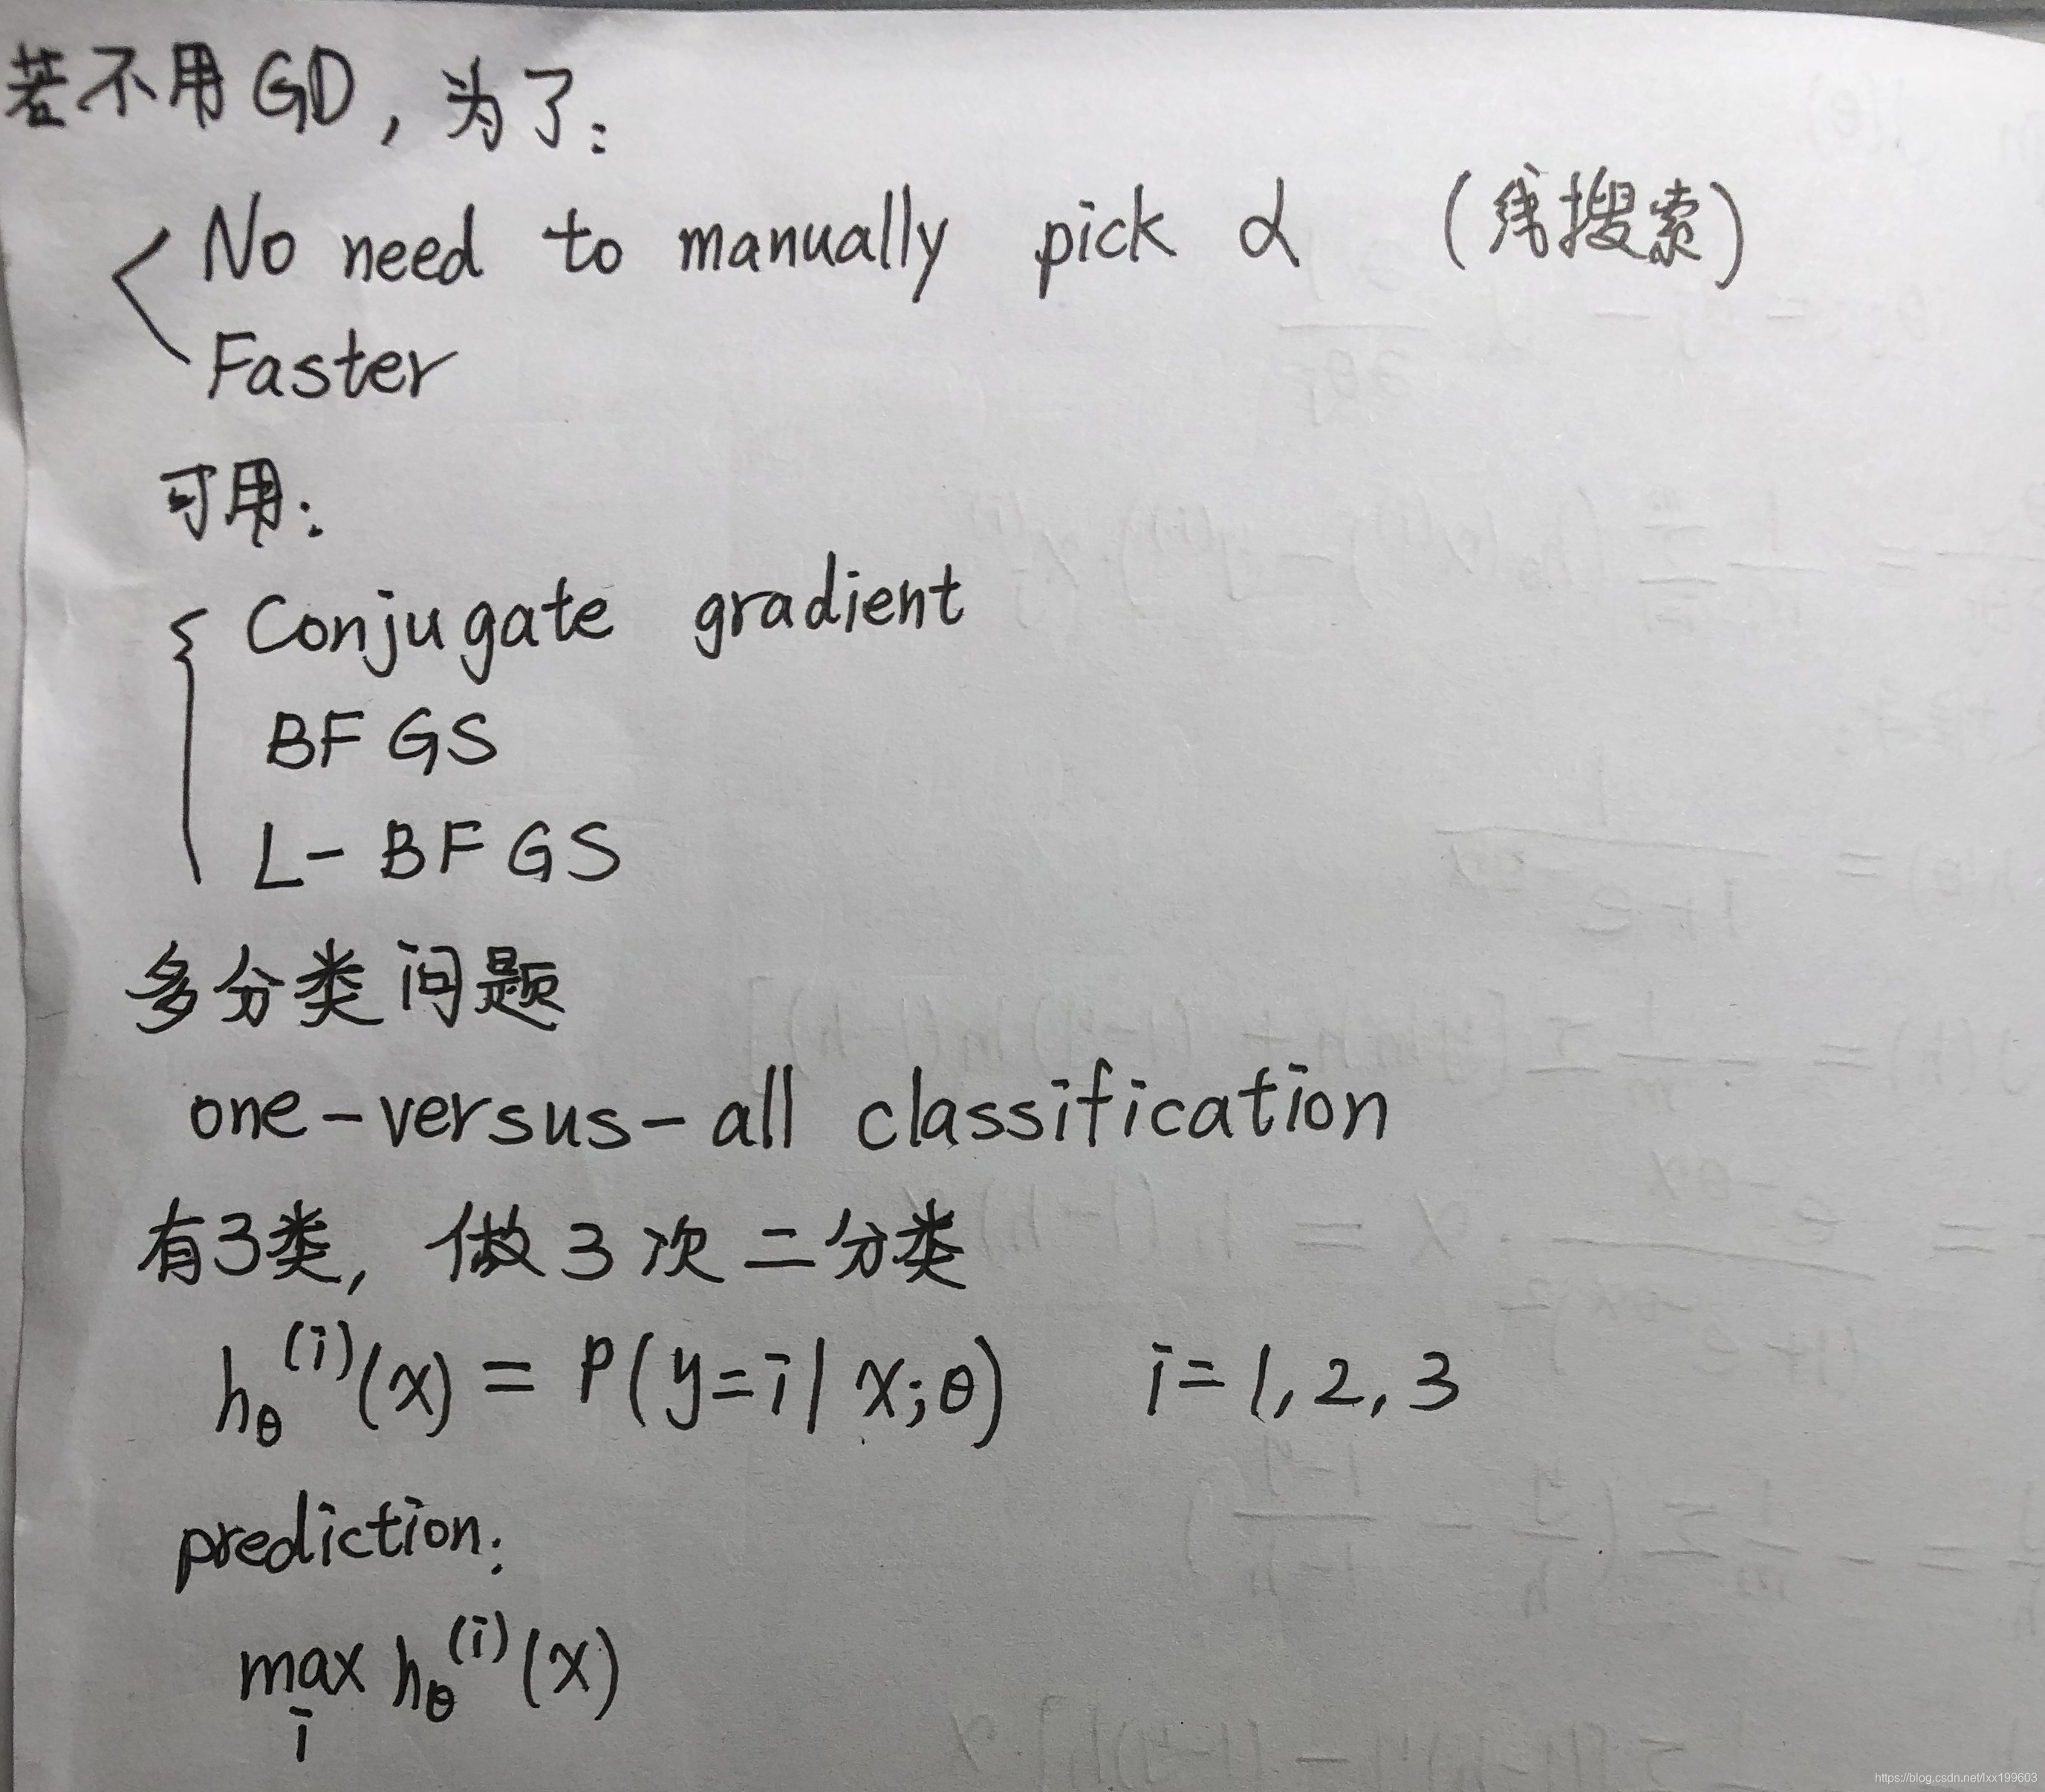 若不用GD，为了：
No need to manually pick α （线搜索）
Faster
可用：
Conjugate gradient
BFGS
L-BFGS
多分类问题
one-versus-all classification
有3类，做3次二分类
h_θ^(i)(x) = P(y=i|x;θ) i=1,2,3
prediction:
max_i h_θ^(i)(x)
https://blog.csdn.net/lxx199603